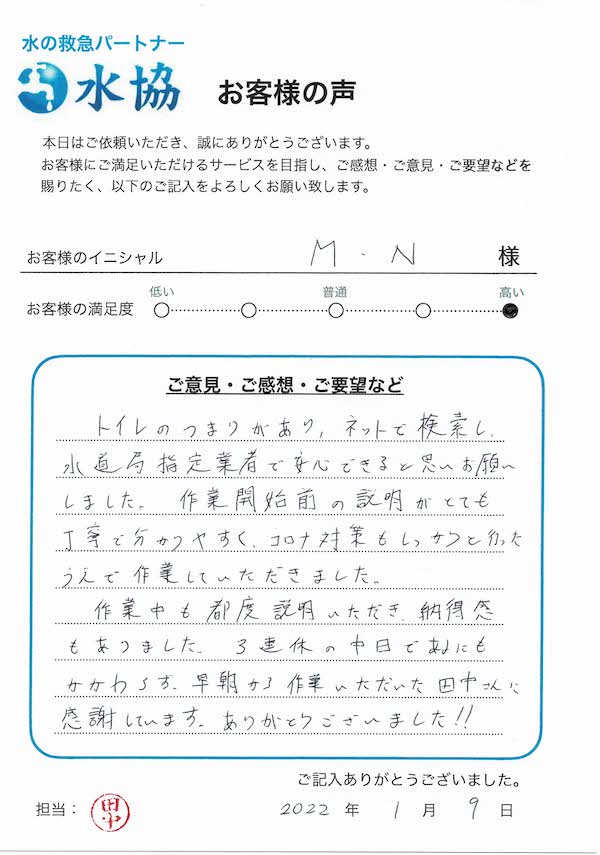 水の救急パートナー
水協 お客様の声
本日はご依頼いただき、誠にありがとうございます。
お客様にご満足いただけるサービスを目指し、ご感想・ご意見・ご要望などを
賜りたく、以下のご記入をよろしくお願い致します。
お客様のイニシャル M・N 様
低い 普通 高い
お客様の満足度
ご意見・ご感想・ご要望など
トイレのつまりがあり、ネットで検索し、
水道局指定業者で安心できると思いお願い
しました。 作業開始前の説明がとても
丁寧で分かりやすく、コロナ対策もしっかりと行った
うえで作業していただきました。
作業中も都度説明いただき、納得感
もありました。 3連休の中日であるにも
かかわらず、早朝から作業いただいた田中さんに
感謝しています。ありがとうございました!!
ご記入ありがとうございました。
担当： 田中 2022 年 1 月 9 日